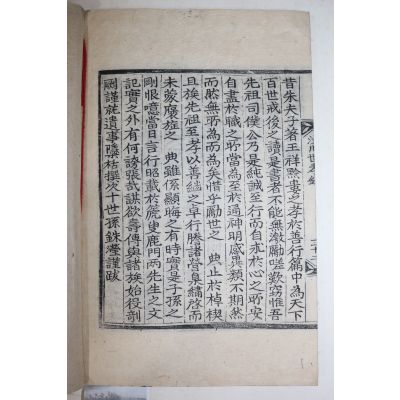 昔朱夫子著王祥黔婁之孝於善行篇中為天下
百世戒後之讀是書者不能無激勵嗟歎竊惟吾
先祖司僕公乃是純誠至行而自求於心之所安
自盡於職之所當為至於通神明感異類不期然
而然無所為而為矣惜乎勵世之 典止於棹楔
且族先祖至孝以善繼之卓行騰諸營臬繡啓而
未蒙褒旌之 典雖係顯晦之有時實是子孫之
剛恨噫當日言行昭載於 鹿門兩先生之文
記實之外有何誇張哉謀欲壽傳與諸族始役剞
劂謹就遺事檃栝撰次十世孫銖 謹跋
世孝錄